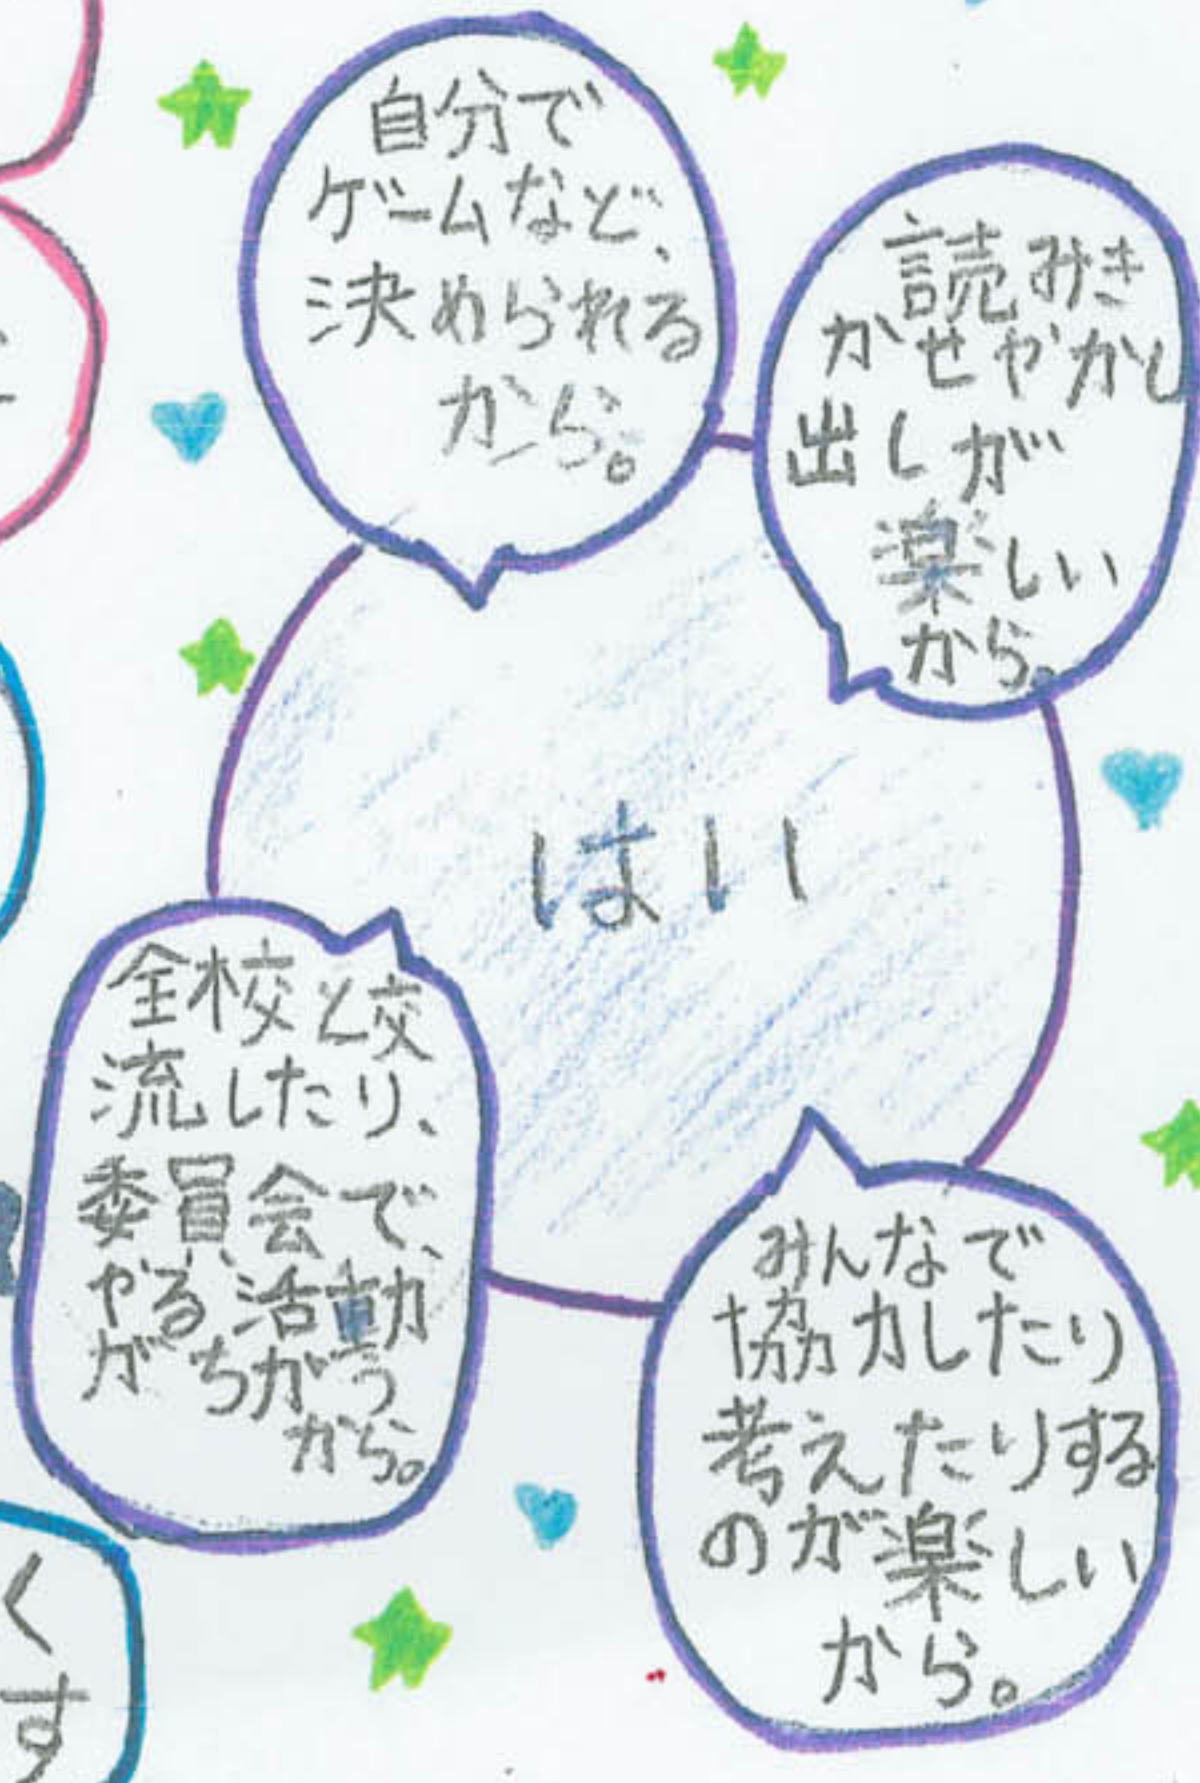 自分で
ゲームなど、
決められる
から。
読みき
かせやかし
出しが
楽しい
から。
はい
全校と交
流したり、
委員会で、
やる活動
がちがう
から。
みんなで
協力したり
考えたりする
のが楽しい
から。
く
す